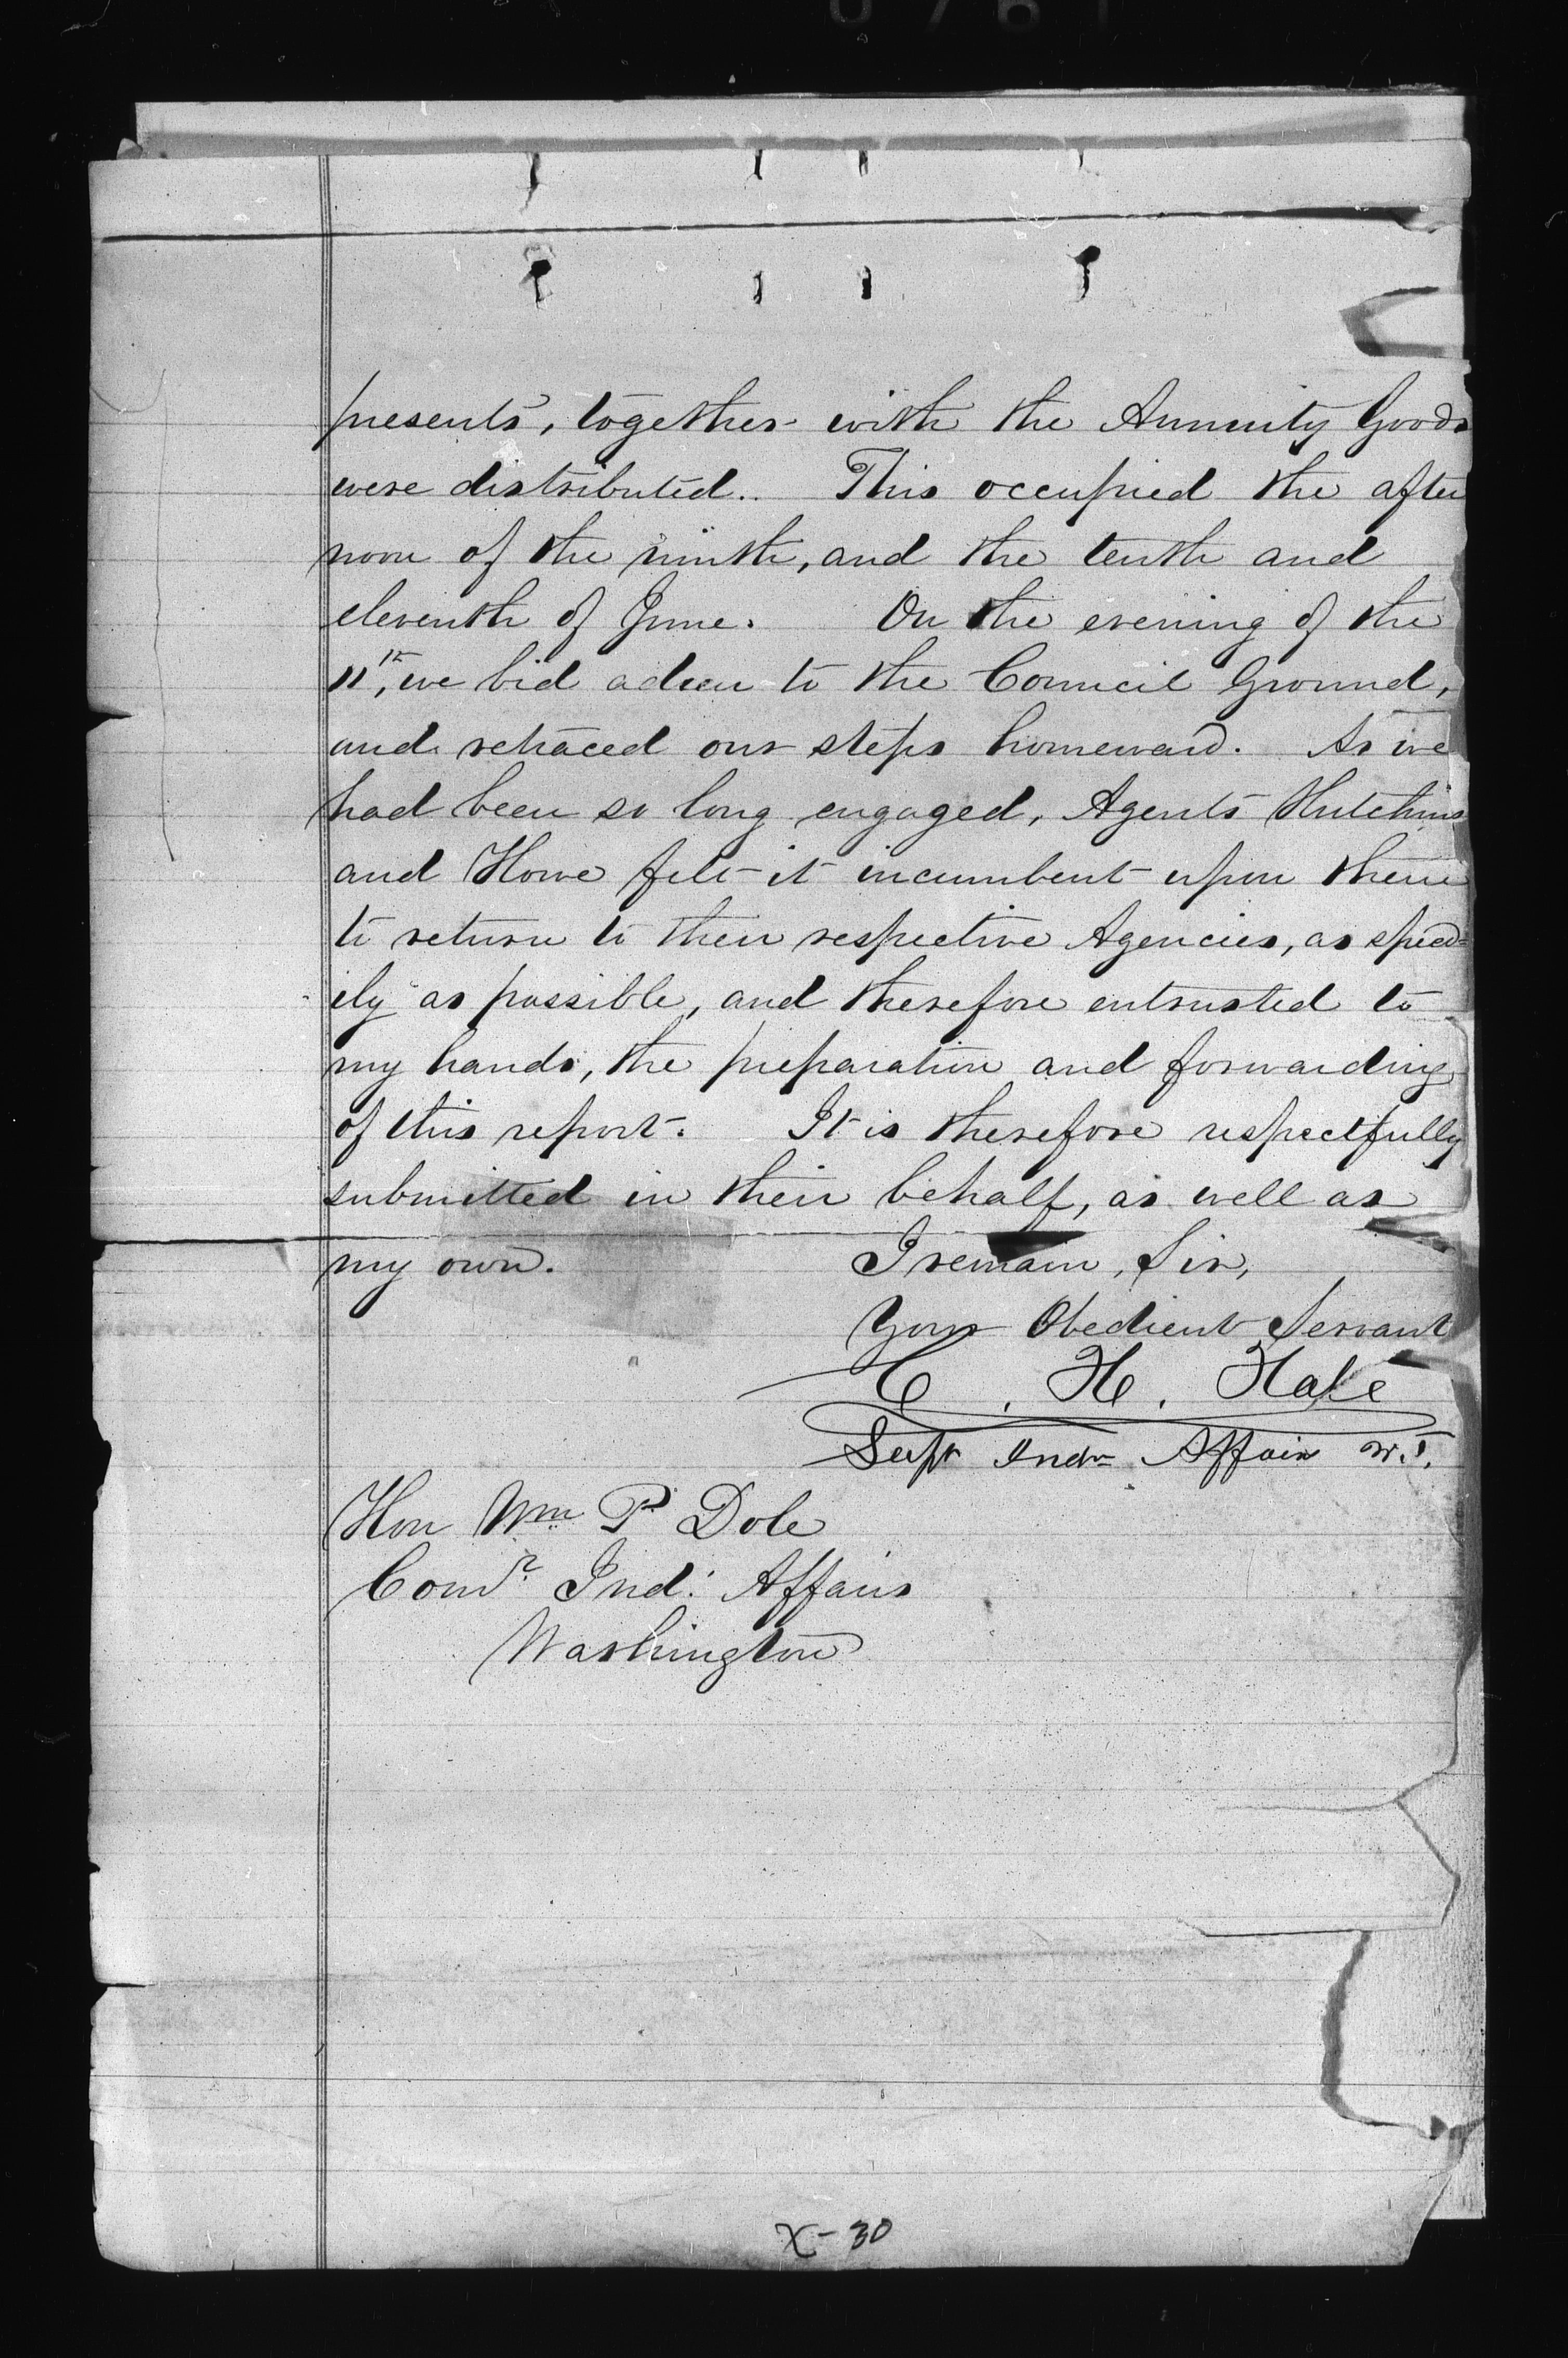 presents, together with the Annuity Goods
were distributed.. This occupied the after
noon of the ninth, and the tenth and
eleventh of June. On the evening of the
11th, we bid adieu to the Council Ground,
and retraced our steps homeward. As we
had been so long engaged, Agents Hutchins
and Howe felt it incumbent upon them
to return to their respective Agencies, as speed=
ily as possible, and therefore entrusted to
my hands, the preparation and forwarding
of this report. It is therefore respectfully
submitted in their behalf, as well as
my own. I remain, Sir,
Your Obedient Servant
C. H. Hale
Supt Indn Affairs W.T.
Hon Wm P Dole
Comr Ind: Affairs
Washington
X-30